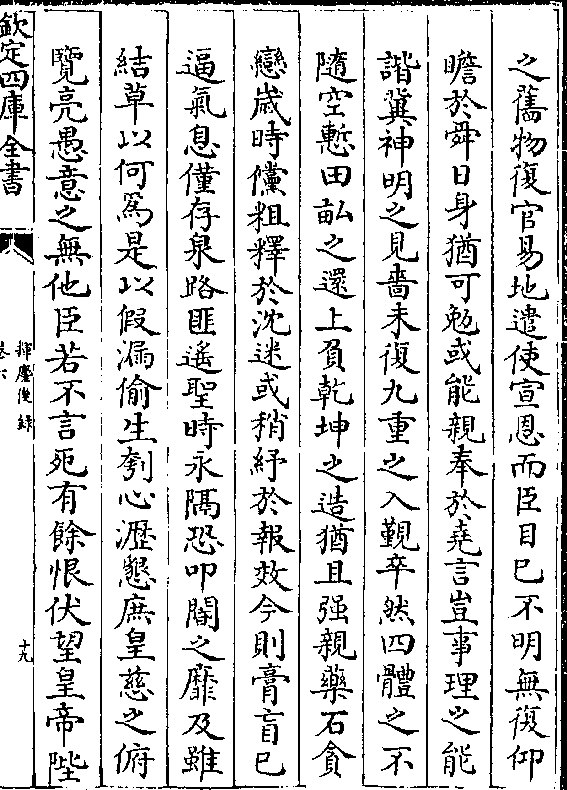 之舊物復官易地遣使宣恩而臣目已不明無復仰
瞻於舜日身猶可勉或能親奉於堯言豈事理之能
諧冀神明之見嗇未復九重之入覲卒然四體之不
隨空慙田畝之還上負乾坤之造猶且强親藥石貪
戀歳時儻粗釋於沈迷或稍紓於報效今則膏盲已
逼氣息僅存泉路匪遙聖時永隔恐叩閽之靡及雖
結草以何為是以假漏偷生刳心瀝懇庶皇慈之俯
覽亮愚意之無他臣若不言死有餘恨伏望皇帝陛
欽定四庫全書
揮麈後錄
卷六
十九